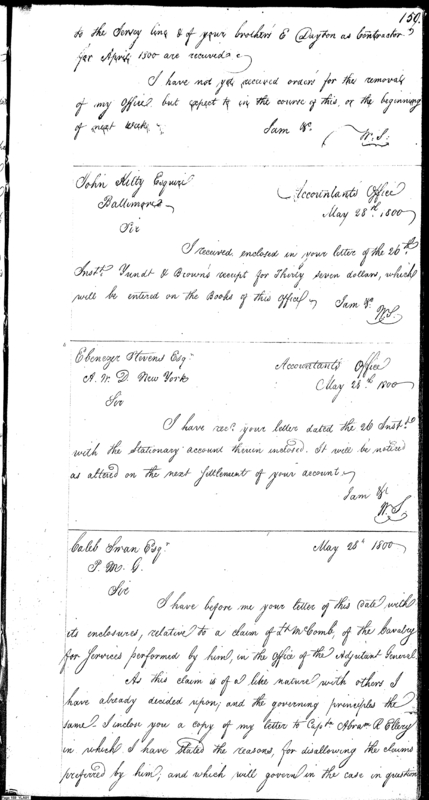 150.
to the Jersey line & of your brothers E Dayton as Contractor
for April 1800 are received.
I have not yet received orders for the removal
of my Office but expect to in the course of this, or the beginning
of next week.
I am &c.
W. S.
John Kilty Esquire
Accountants Office
Baltimore
May 28th. 1800
Sir
I received enclosed in your letter of the 26th.
Instt. Yundt & Browns receipt for Thirty seven dollars, which
will be entered on the Books of this Office.
I am &c.
W. S.
Ebenezer Stevens Esqr.
Accountants Office
A. W. D. New York
May 28th 1800
Sir
I have recd. your letter dated the 26 Inst.
with the Stationary account therein inclosed. It will be noticed
as altered on the next Settlement of your account.
I am &c
W. S.
Caleb Swan Esqr.
May 28th 1800
P. M. G.
Sir
I have before me your letter of this date with
its enclosures, relative to a claim of Lt. McComb, of the Cavalry
for Services performed by him, in the Office of the Adjutant General
As this claim is of a like nature with others I
have already decided upon; and the governing principles the
same. I inclose you a copy of my letter to Capt. Abram R Ellery
in which I have stated the reasons, for disallowing the claims
preferred by him; and which will govern in the case in question